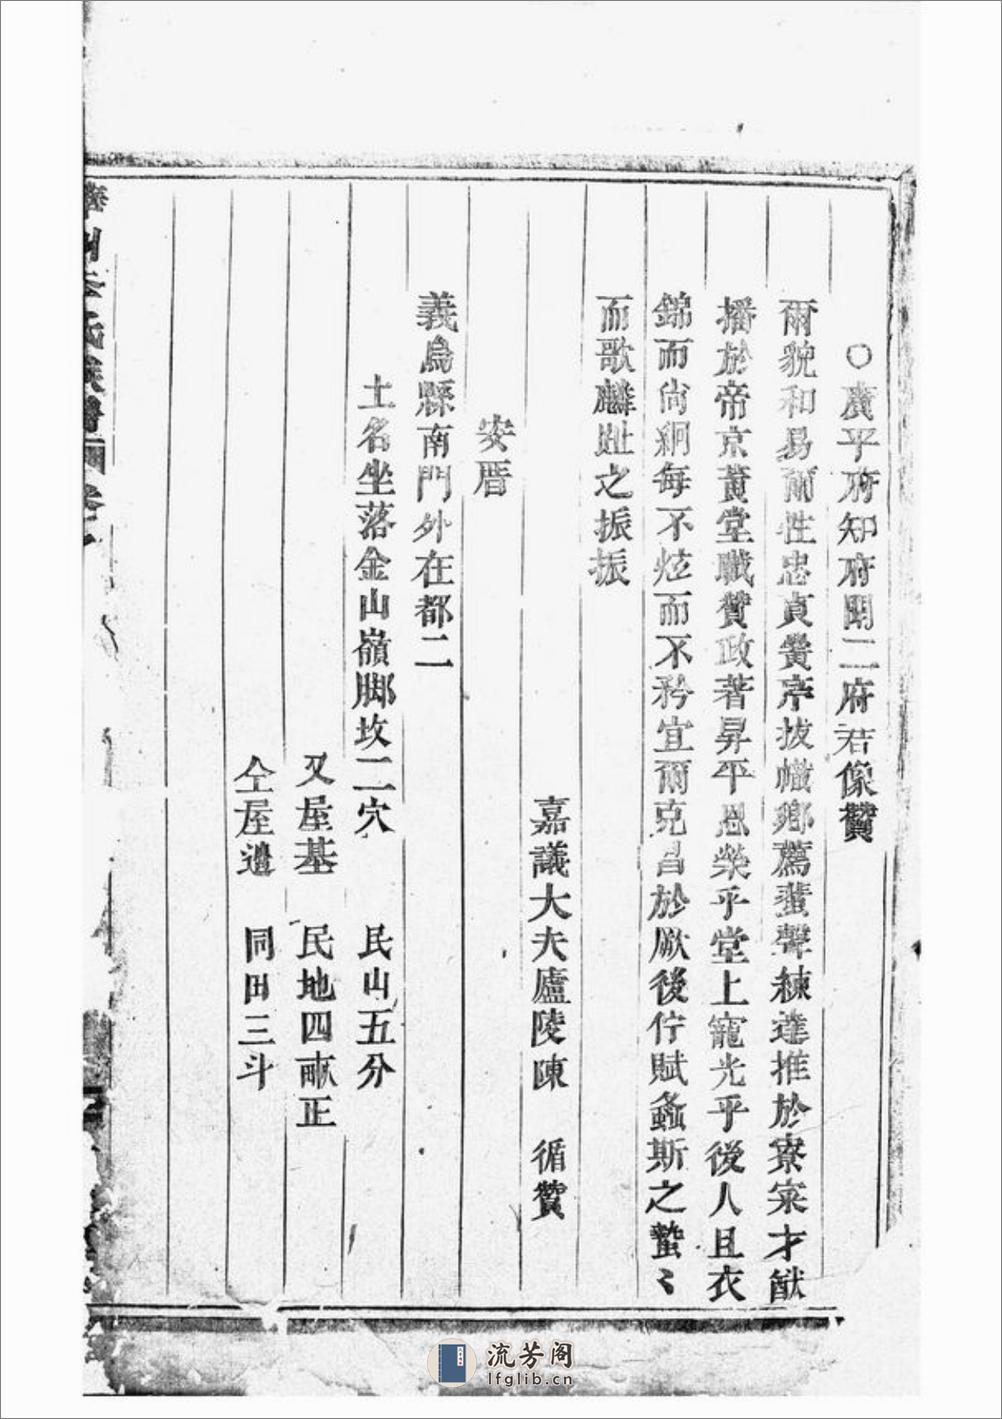 ○廣平府知府開二府君像贊
爾貌和易爾性忠貞黌序拔幟鄉薦蜚聲練達推於寮寀才猷
播於帝京黃堂職贊政著昇平恩榮乎堂上寵光乎後人且衣
錦而尚絅每不炫而不矜宜爾克昌於厥後佇賦螽斯之蟄〻
而歌麟趾之振振
嘉議大夫廬陵陳　循贊
安厝
義烏縣南門外在都二
土名坐落金山嶺脚坟二穴　民山五分
又屋基　民地四畝正
仝屋邊　同田三斗
氏族譜
流芳阁
lfglib.cn